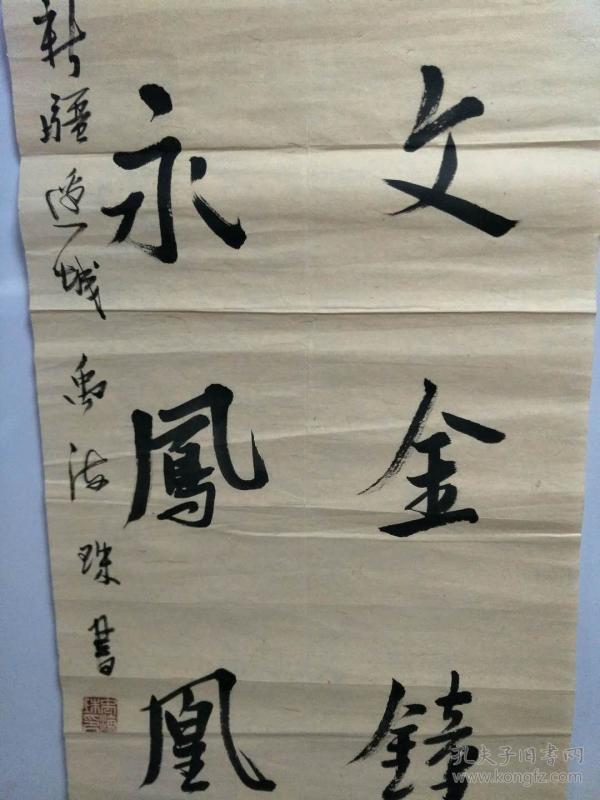 文金
永鳳凰
新疆邊城禹海珠書
孔夫子旧书网
www.kongfz.com